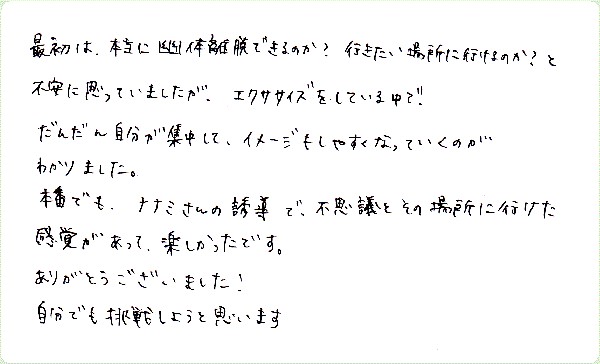 最初は、本当に幽体離脱できるのか？行きたい場所に行けるのか？と
不安に思っていましたが、エクササイズをしている中で！
だんだん自分が集中して、イメージもしやすくなっていくのが
わかりました。
本番でも、ナナミさんの誘導で、不思議とその場所に行けた
感覚があって、楽しかったです。
ありがとうございました！
自分でも挑戦しようと思います